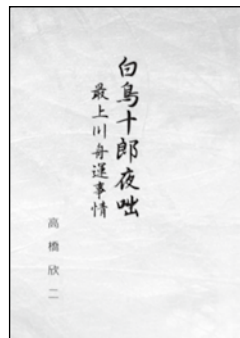 白鳥十郎夜咄
最上川舟運事情
高橋欣二